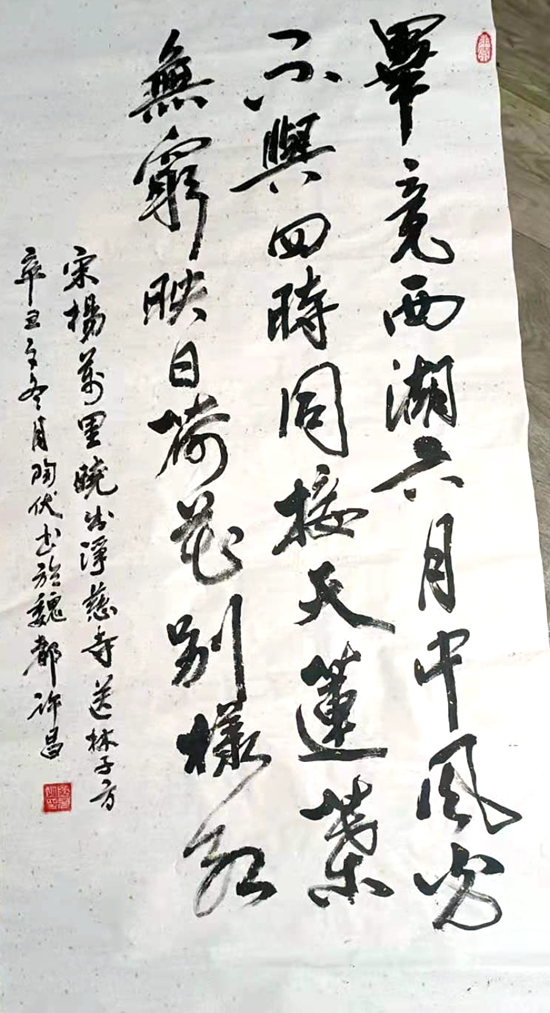 畢竟西湖六月中風光
不與四時同接天蓮葉
無窮映日荷花別樣紅
宋楊萬里曉出淨慈寺送林子方
辛丑之冬月陶伏书於魏都许昌